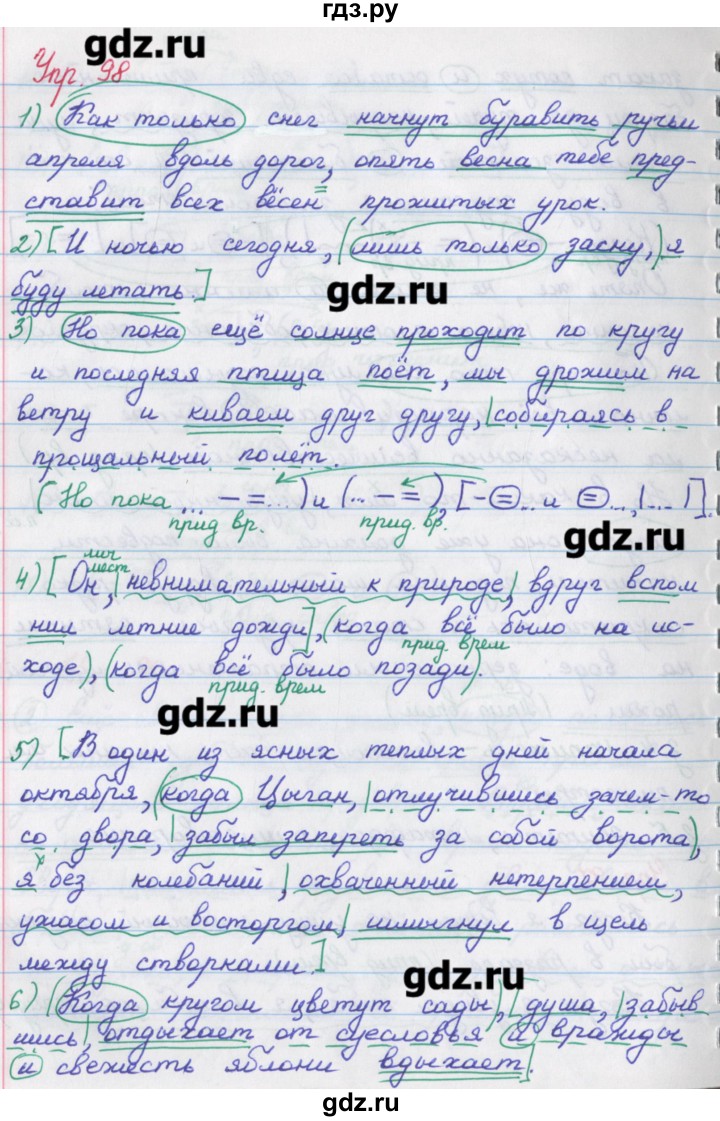 гдз.ру
gdz.ru
Упр. 98
1) Как только снег начнут буравить ручьи
апреля вдоль дорог, опять весна тебе пред-
ставит всех вёсен прожитых урок.
2) [И ночью сегодня, (лишь только засну,) я
буду летать.]
gdz.ru
3) Но пока ещё солнце проходит по кругу
и последняя птица поёт, мы дрожим на
ветру и киваем друг другу, |собираясь в
прощальный полёт.
(Но пока ... – = ...) и (... – =), [– = .. и = ..., |...|].
прид. вр. прид. вр.
gdz.ru
лич
мест
4) [Он, |невнимательный к природе|, вдруг вспом
нил летние дожди], (когда всё было на ис-
прид. врем
ходе), (когда всё было позади).
прид. врем
gdz.ru
5) [В один из ясных теплых дней начала
октября, (когда Цыган, |отлучившись зачем-то
со двора, |забыл запереть за собой ворота),
х
я без колебаний, |охваченный нетерпением,
ужасом и восторгом,| шмыгнул в щель
между створками.]
gdz.ru
6) (Когда кругом цветут сады), [душа, |забыв
шись,| отдыхает от суесловья и вражды
и свежесть яблони вдыхает].
gdz.ru